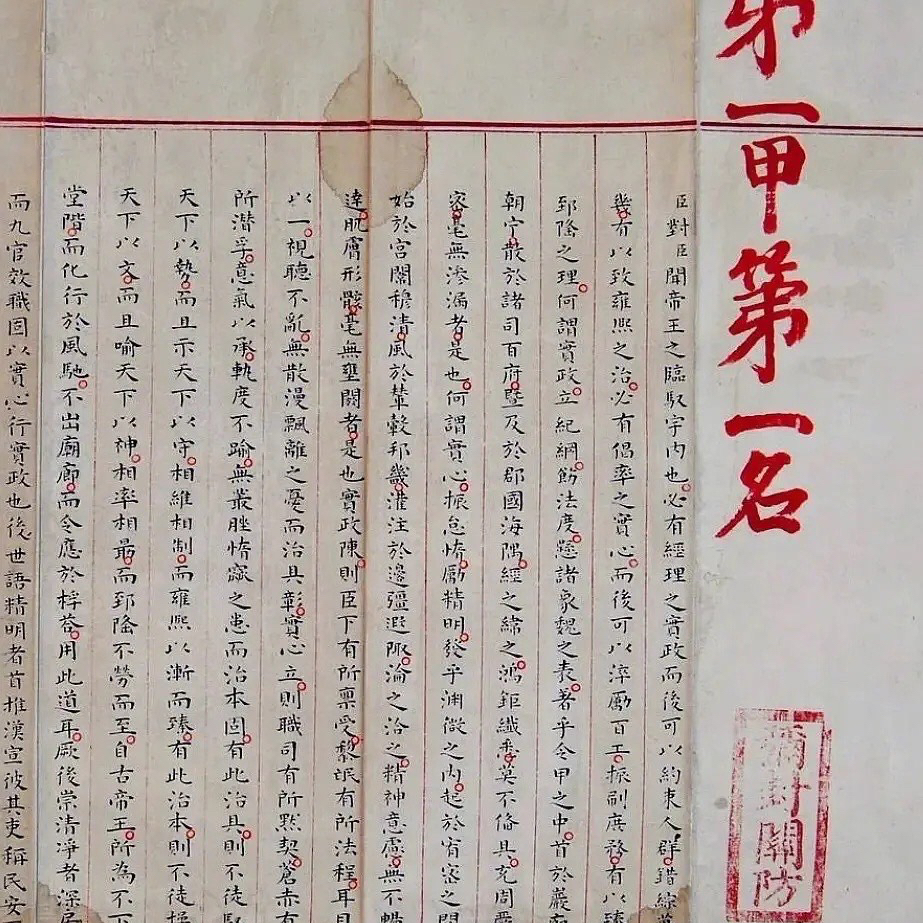 第一甲第一名
彌封關防
臣對臣聞帝王之臨馭宇內也必有經理之實政而後可以約束人群錯綜
幾有以致雍熙之治必有倡率之實心而後可以淬勵百工振刷庶務有以臻
郅隆之理何謂實政立紀綱飭法度懸諸象魏之表著乎令甲之中首於巖廊
朝宁散於諸司百府暨及於郡國海隅經之緯之鴻鉅纖悉莫不備具充周
密毫無滲漏者是也何謂實心振怠惰勵精明發乎淵微之內起於宥密之間
始於宮闈穆清風於輦轂邦畿灌注於邊疆遐陬淪之洽之精神意慮無不
達肌膚形骸毫無壅閼者是也實政陳則臣下有所稟受黎氓有所法程耳目
以一視聽不亂無散漫飄離之憂而治具彰實心立則職司有所默契蒼赤有
所潛孚意氣以承軌度不踰無叢脞惰窳之患而治本固有此治具則不徒馭
天下以勢而且示天下以守相維相制而雍熙以漸而臻有此治本則不徒操
天下以文而且喻天下以神相率相最而郅隆不勞而至自古帝王所為不下
堂階而化行於風馳不出廟廊而令應於桴荅用此道耳厥後崇清淨者深居
而九官效職固以實心行實政也後世語精明者首推漢宣彼其吏稱民安